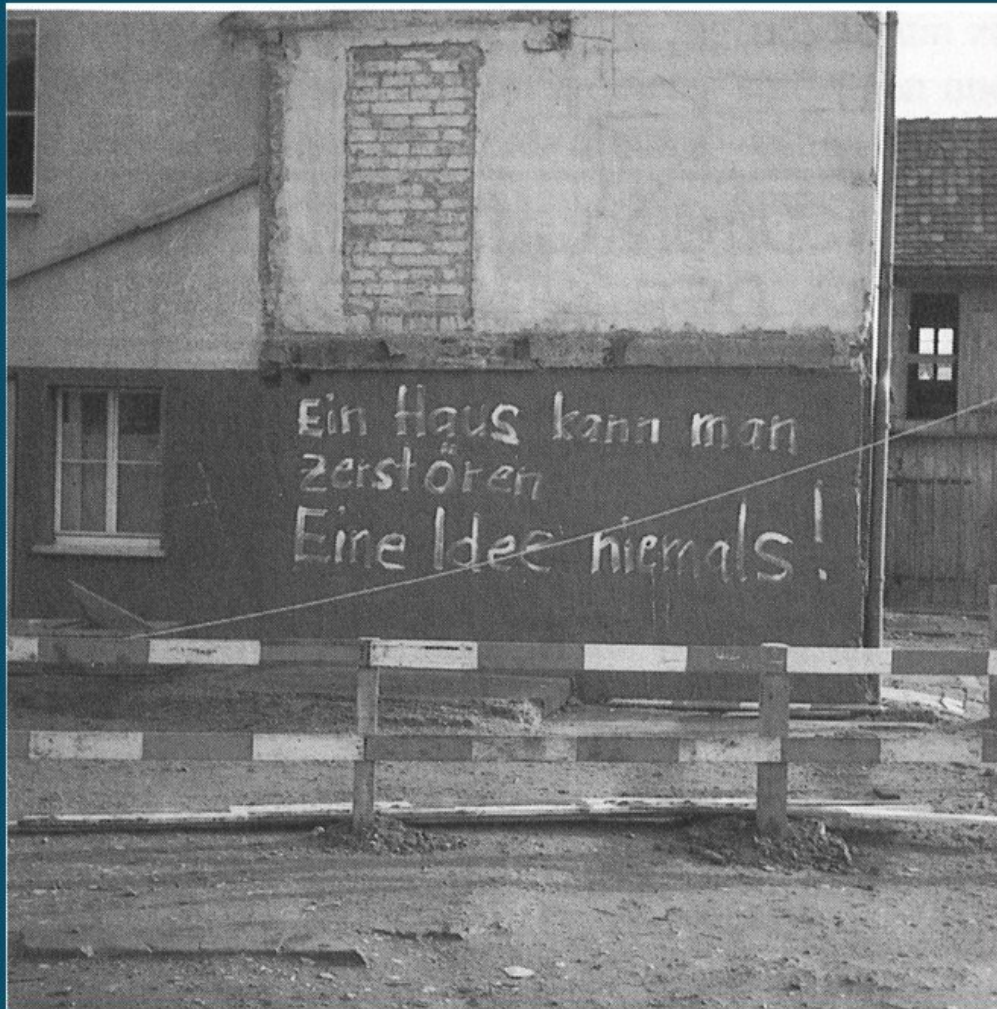 Ein Haus kann man
zerstören
Eine Idee niemals!